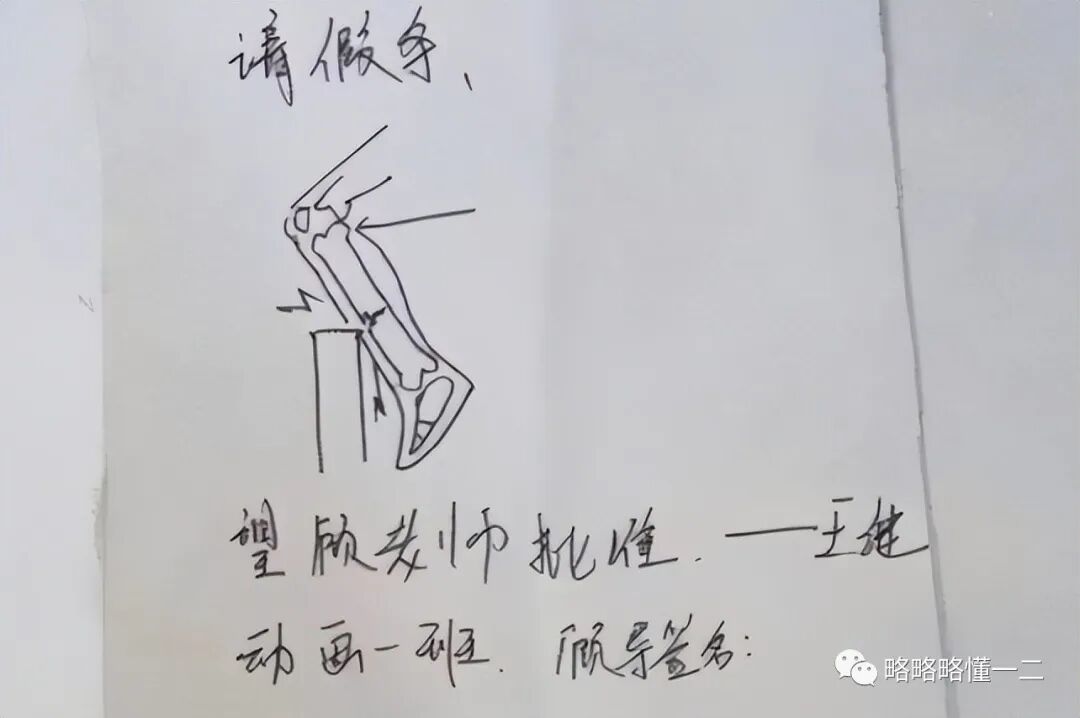 请假条、
望顾老师批准. ——王健
动画一班. 顾导签名:
略略略懂一二